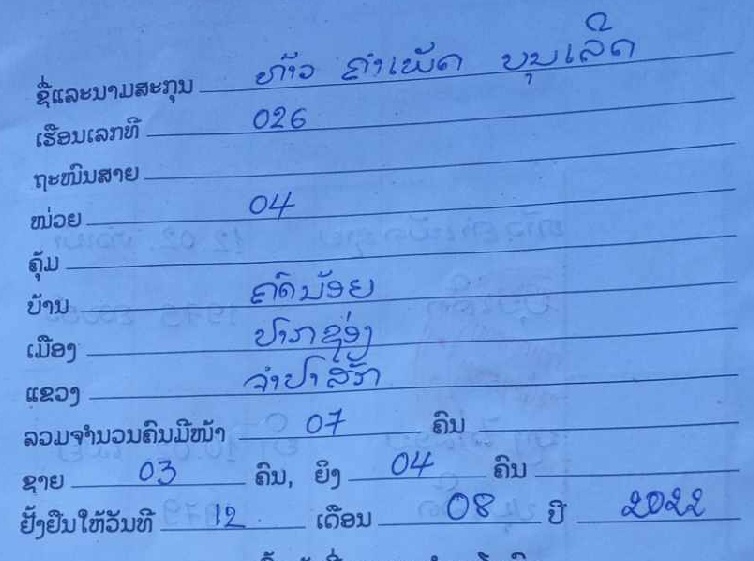 ຊື່ແລະນາມສະກຸນ ທ້າວ ຄຳເພັດ ບຸນເລີດ
ເຮືອນເລກທີ 026
ຖະໜົນສາຍ
ໜ່ວຍ 04
ຄຸ້ມ
ບ້ານ ຄົດນ້ອຍ
ເມືອງ ປາກຊ່ອງ
ແຂວງ ຈຳປາສັກ
ລວມຈຳນວນຄົນມີໜ້າ 07 ຄົນ
ຊາຍ 03 ຄົນ, ຍິງ 04 ຄົນ
ຢັ້ງຢືນໃຫ້ວັນທີ 12 ເດືອນ 08 ປີ 2022